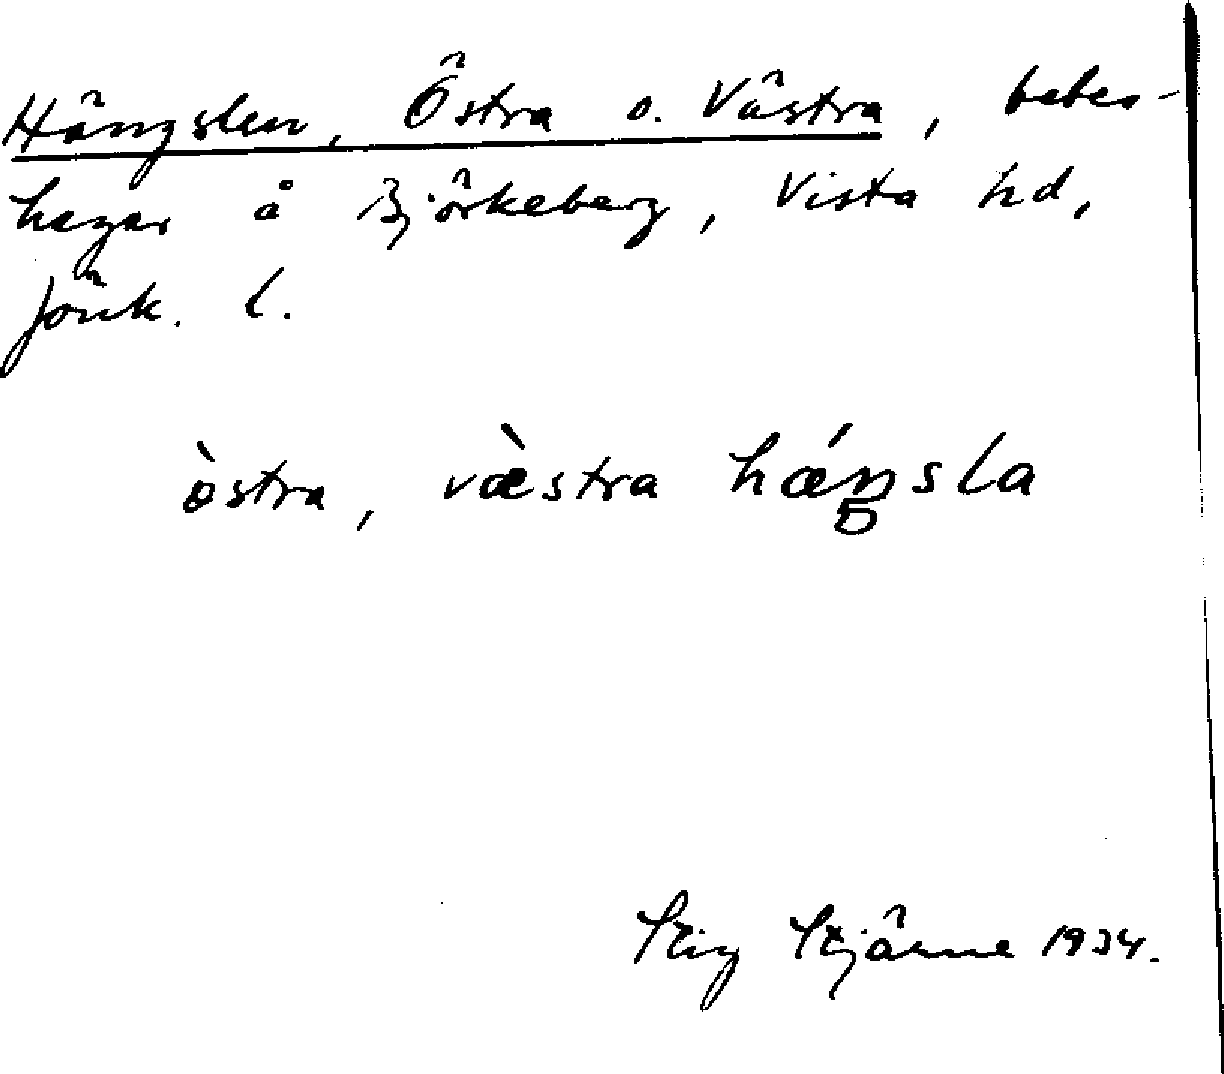 Hängslen, Östra o. Västra, betes-
hagar å Björkeberg, Vista hd,
Jönk. l.
òstra, væ̀stra hǽŋsla
Stig Stjärne 1934.